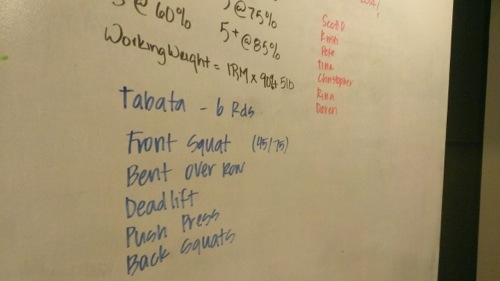 @ 60%
@ 75%
5+ @ 85%
Working Weight = 1RM x 90%
Tabata - 6 Rds
Front Squat (45/75)
Bent Over Row
Deadlift
Push Press
Back Squats
Scott D
Pete
Tina
Christopher
Rina